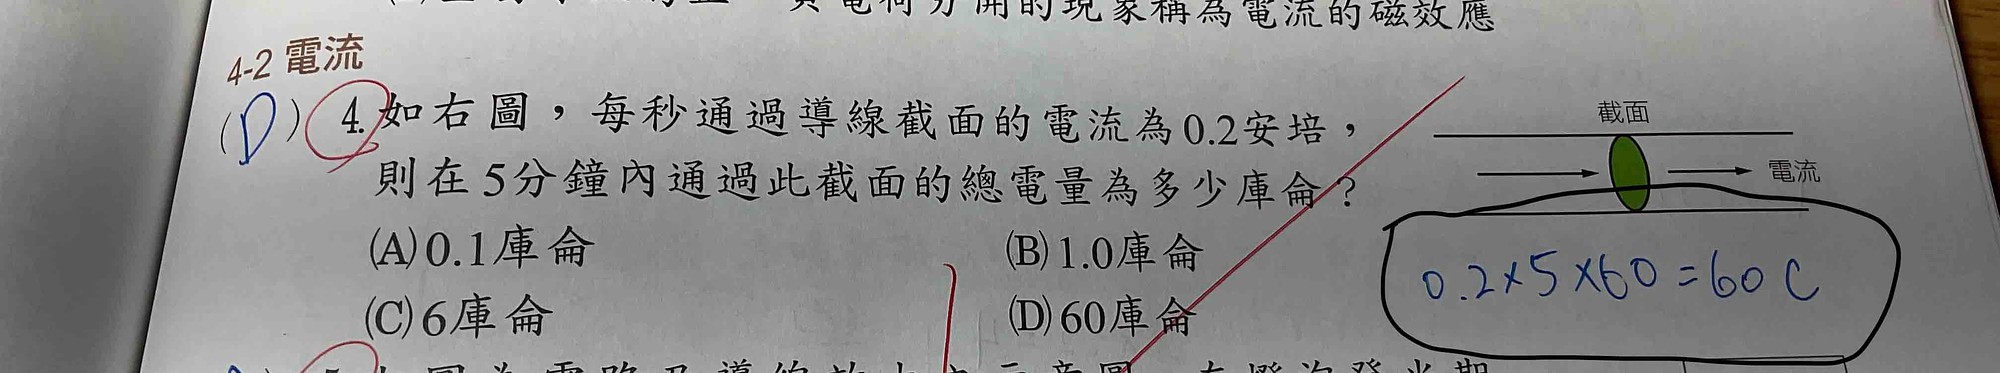 負電荷分開的現象稱為電流的磁效應
4-2 電流
(D) 4. 如右圖，每秒通過導線截面的電流為0.2安培，
則在5分鐘內通過此截面的總電量為多少庫侖？
(A) 0.1庫侖 (B) 1.0庫侖
(C) 6庫侖 (D) 60庫侖
截面
電流
0.2×5×60=60 C